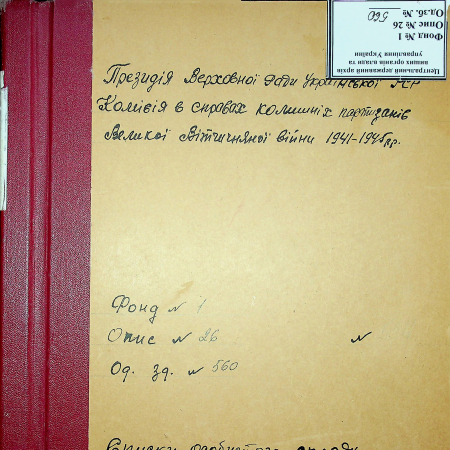 Центральний державний архів
вищих органів влади та
управління України
Фонд № 1
Опис № 26
Од.зб. № 560
Президія Верховної Ради Української РСР
Комісія в справах колишніх партизанів
Великої Вітчизняної війни 1941-1945рр.
Фонд № 1
Опис № 26 №
Од. зб. № 560
Списки особистого складу